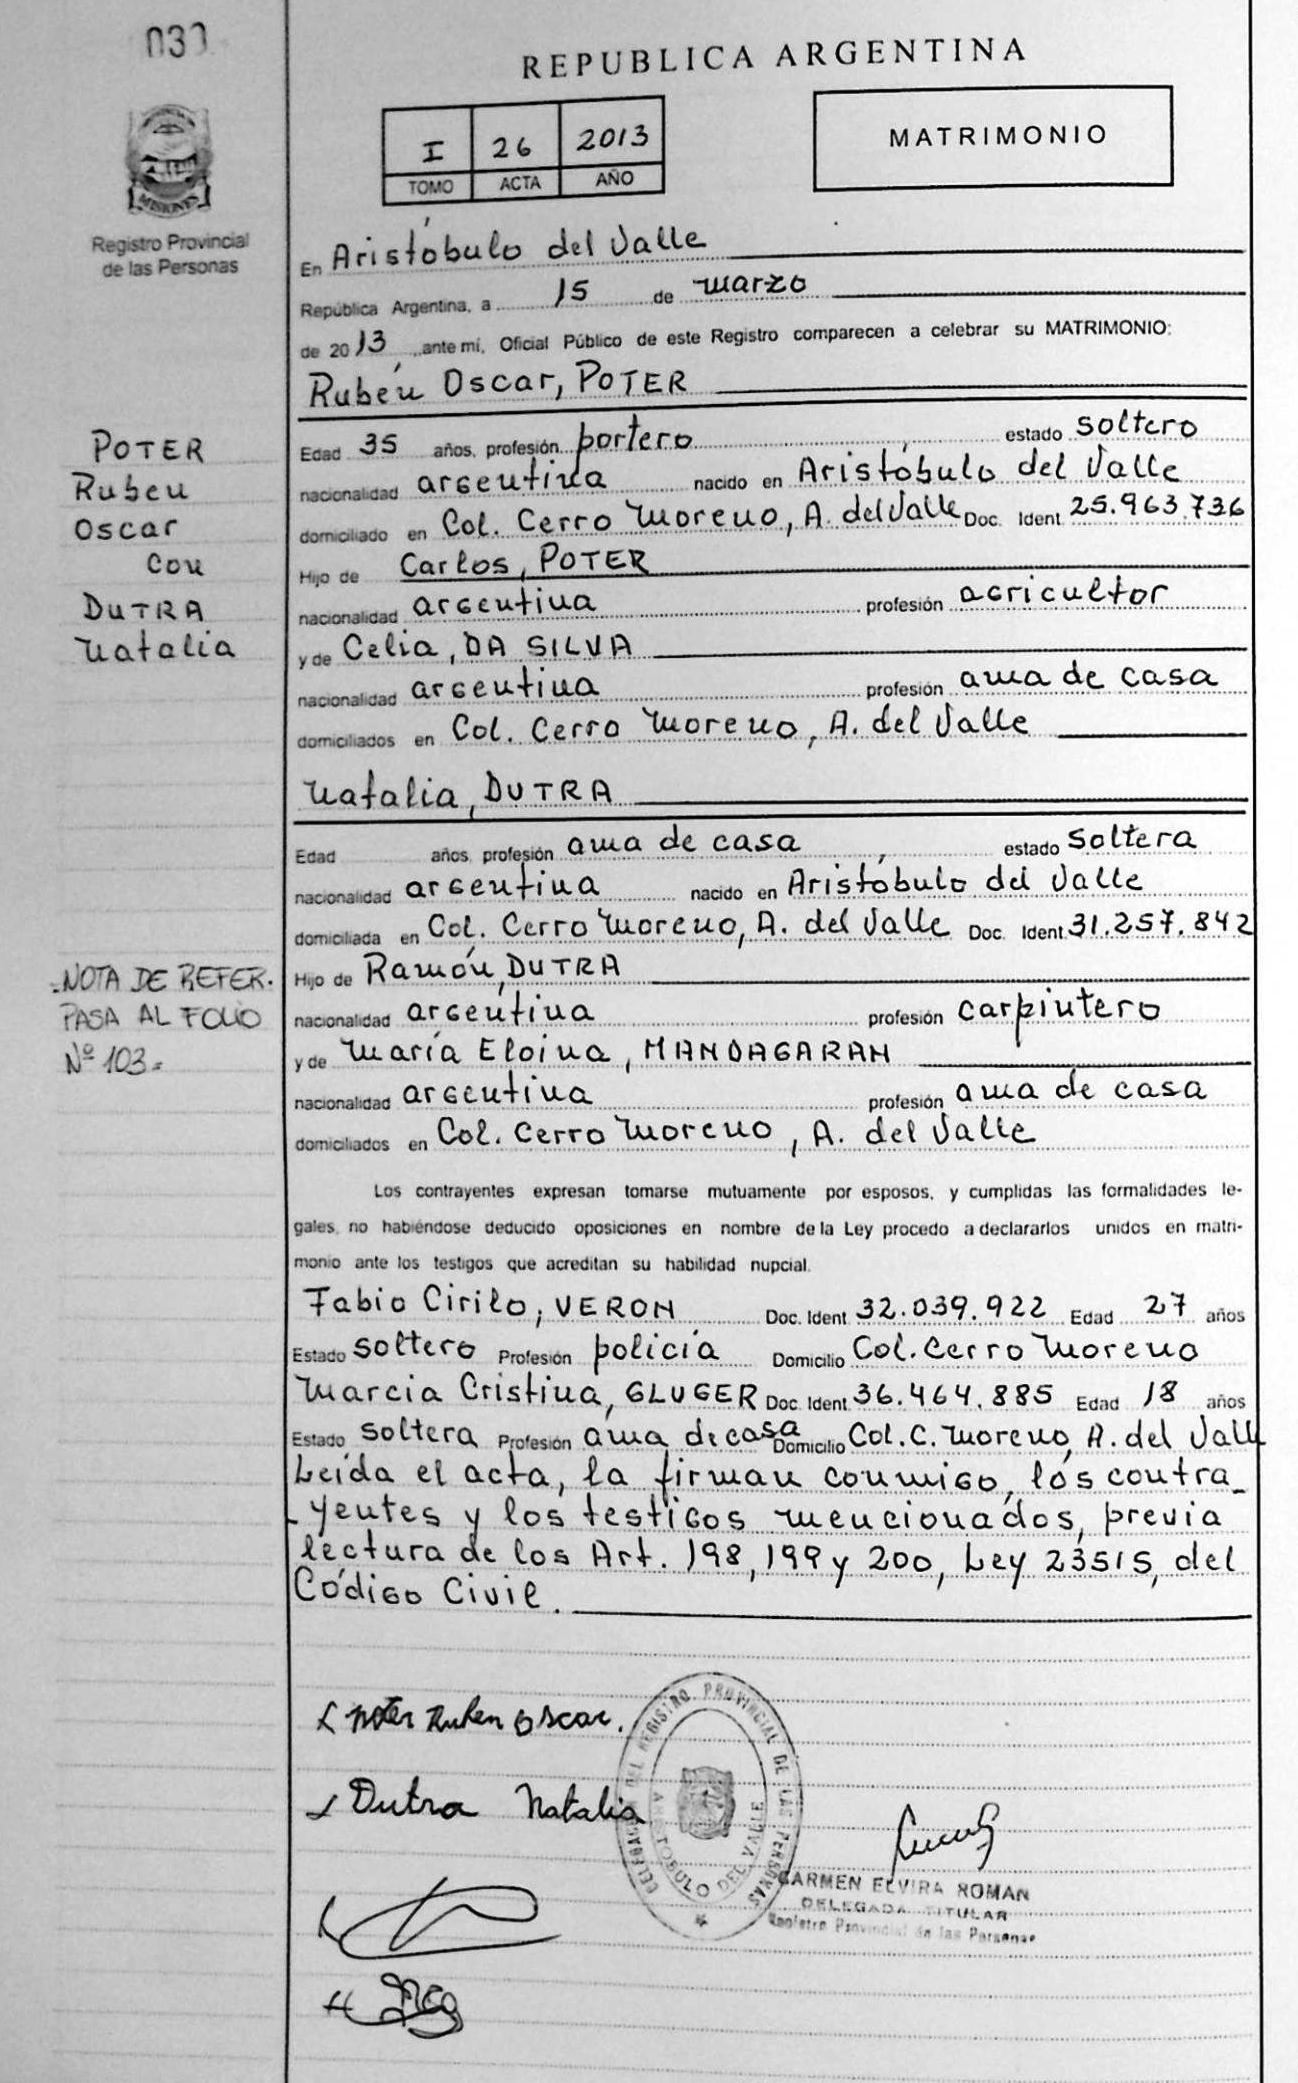 REPUBLICA ARGENTINA
I 26 2013
TOMO ACTA AÑO
MATRIMONIO
MISIONES
Registro Provincial
de las Personas
En Aristóbulo del Valle
República Argentina, a 15 de marzo
de 2013 ante mí, Oficial Público de este Registro comparecen a celebrar su MATRIMONIO:
Rubén Oscar, POTER
POTER
Ruben
Oscar
con
DUTRA
Natalia
Edad 35 años, profesión portero estado soltero
nacionalidad argentina nacido en Aristóbulo del Valle
domiciliado en Col. Cerro Moreno, A. del Valle Doc. Ident 25.963.736
Hijo de Carlos, POTER
nacionalidad argentina profesión agricultor
y de Celia, DA SILVA
nacionalidad argentina profesión ama de casa
domiciliados en Col. Cerro Moreno, A. del Valle
Natalia, DUTRA
Edad años, profesión ama de casa estado soltera
nacionalidad argentina nacido en Aristóbulo del Valle
domiciliada en Col. Cerro Moreno, A. del Valle Doc. Ident 31.257.842
Hijo de Ramón, DUTRA
nacionalidad argentina profesión carpintero
y de María Eloina, MANDAGARAN
nacionalidad argentina profesión ama de casa
domiciliados en Col. Cerro Moreno, A. del Valle
NOTA DE REFER.
PASA AL FOLIO
Nº 103.=
Los contrayentes expresan tomarse mutuamente por esposos, y cumplidas las formalidades le-
gales, no habiéndose deducido oposiciones en nombre de la Ley procedo a declararlos unidos en matri-
monio ante los testigos que acreditan su habilidad nupcial.
Fabio Cirilo, VERON Doc. Ident 32.039.922 Edad 27 años
Estado soltero Profesión policía Domicilio Col. Cerro Moreno
Marcia Cristina, GLUGER Doc. Ident 36.464.885 Edad 18 años
Estado soltera Profesión ama de casa Domicilio Col. C. Moreno, A. del Valle
Leída el acta, la firman conmigo, los contra_
_yentes y los testigos mencionados, previa
lectura de los Art. 198, 199 y 200, Ley 23515, del
Código Civil.
Poter Ruben Oscar.
Dutra Natalia
DELEGACION DEL REGISTRO PROVINCIAL DE LAS PERSONAS
ARISTOBULO DEL VALLE
CARMEN ELVIRA ROMAN
DELEGADA TITULAR
Registro Provincial de las Personas